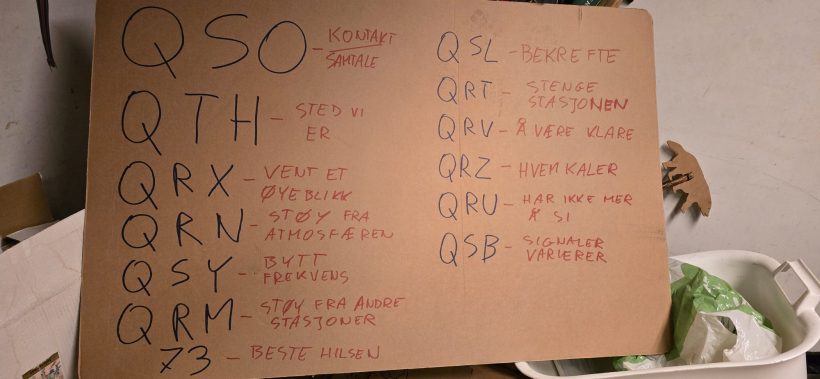 QSO - KONTAKT
SAMTALE
QTH - STED VI
ER
QRX - VENT ET
ØYEBLIKK
QRN - STØY FRA
ATMOSFÆREN
QSY - BYTT
FREKVENS
QRM - STØY FRA ANDRE
STASJONER
73 - BESTE HILSEN
QSL - BEKREFTE
QRT - STENGE
STASJONEN
QRV - Å VÆRE KLARE
QRZ - HVEM KALER
QRU - HAR IKKE MER
Å SI
QSB - SIGNALER
VARIERER